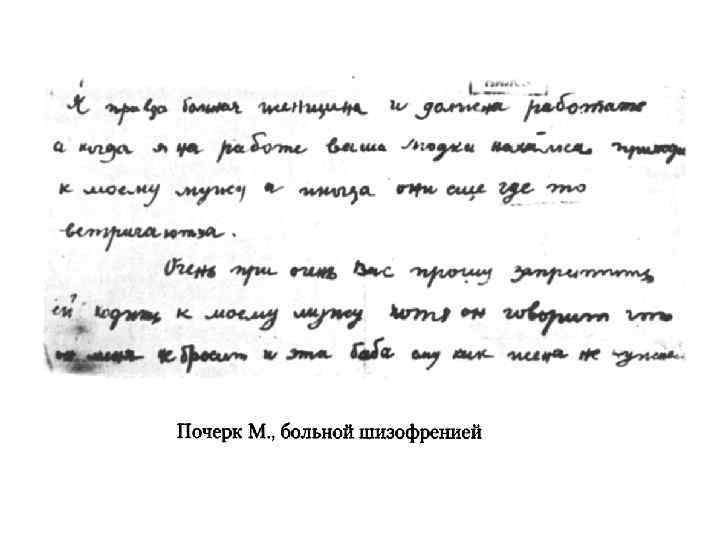 Я правда больная женщина и должна работате
а когда я на работе ваша людка приходи
к моему мужу а иногда они еще где то
встричаютза.
Очень при очень Вас прошу запритить
ей ходить к моему мужу хотя он говорит что
он меня не бросит и эта баба ему как жена не нужна
Почерк М., больной шизофренией